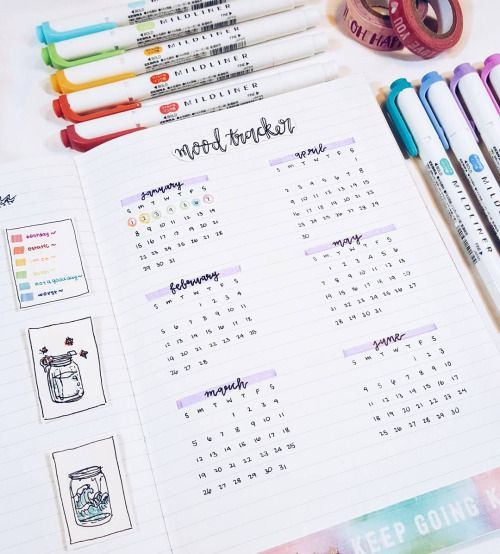 MILDLINER
MILDLINER
MILDLINER
MILDLINER
OH HAPP
YOU
mood tracker
january
S M T W T F S
1 2 3 4 5 6 7
8 9 10 11 12 13 14
15 16 17 18 19 20 21
22 23 24 25 26 27 28
29 30 31
february
S M T W T F S
1 2 3 4
5 6 7 8 9 10 11
12 13 14 15 16 17 18
19 20 21 22 23 24 25
26 27 28
march
S M T W T F S
1 2 3 4
5 6 7 8 9 10 11
12 13 14 15 16 17 18
19 20 21 22 23 24 25
26 27 28 29 30 31
april
S M T W T F S
1
2 3 4 5 6 7 8
9 10 11 12 13 14 15
16 17 18 19 20 21 22
23 24 25 26 27 28 29
30
may
S M T W T F S
1 2 3 4 5 6
7 8 9 10 11 12 13
14 15 16 17 18 19 20
21 22 23 24 25 26 27
28 29 30 31
june
S M T W T F S
1 2 3
4 5 6 7 8 9 10
11 12 13 14 15 16 17
18 19 20 21 22 23 24
25 26 27 28 29 30
not a good day~
worst~
MILDLINER
MILDLINER
KEEP GOING K